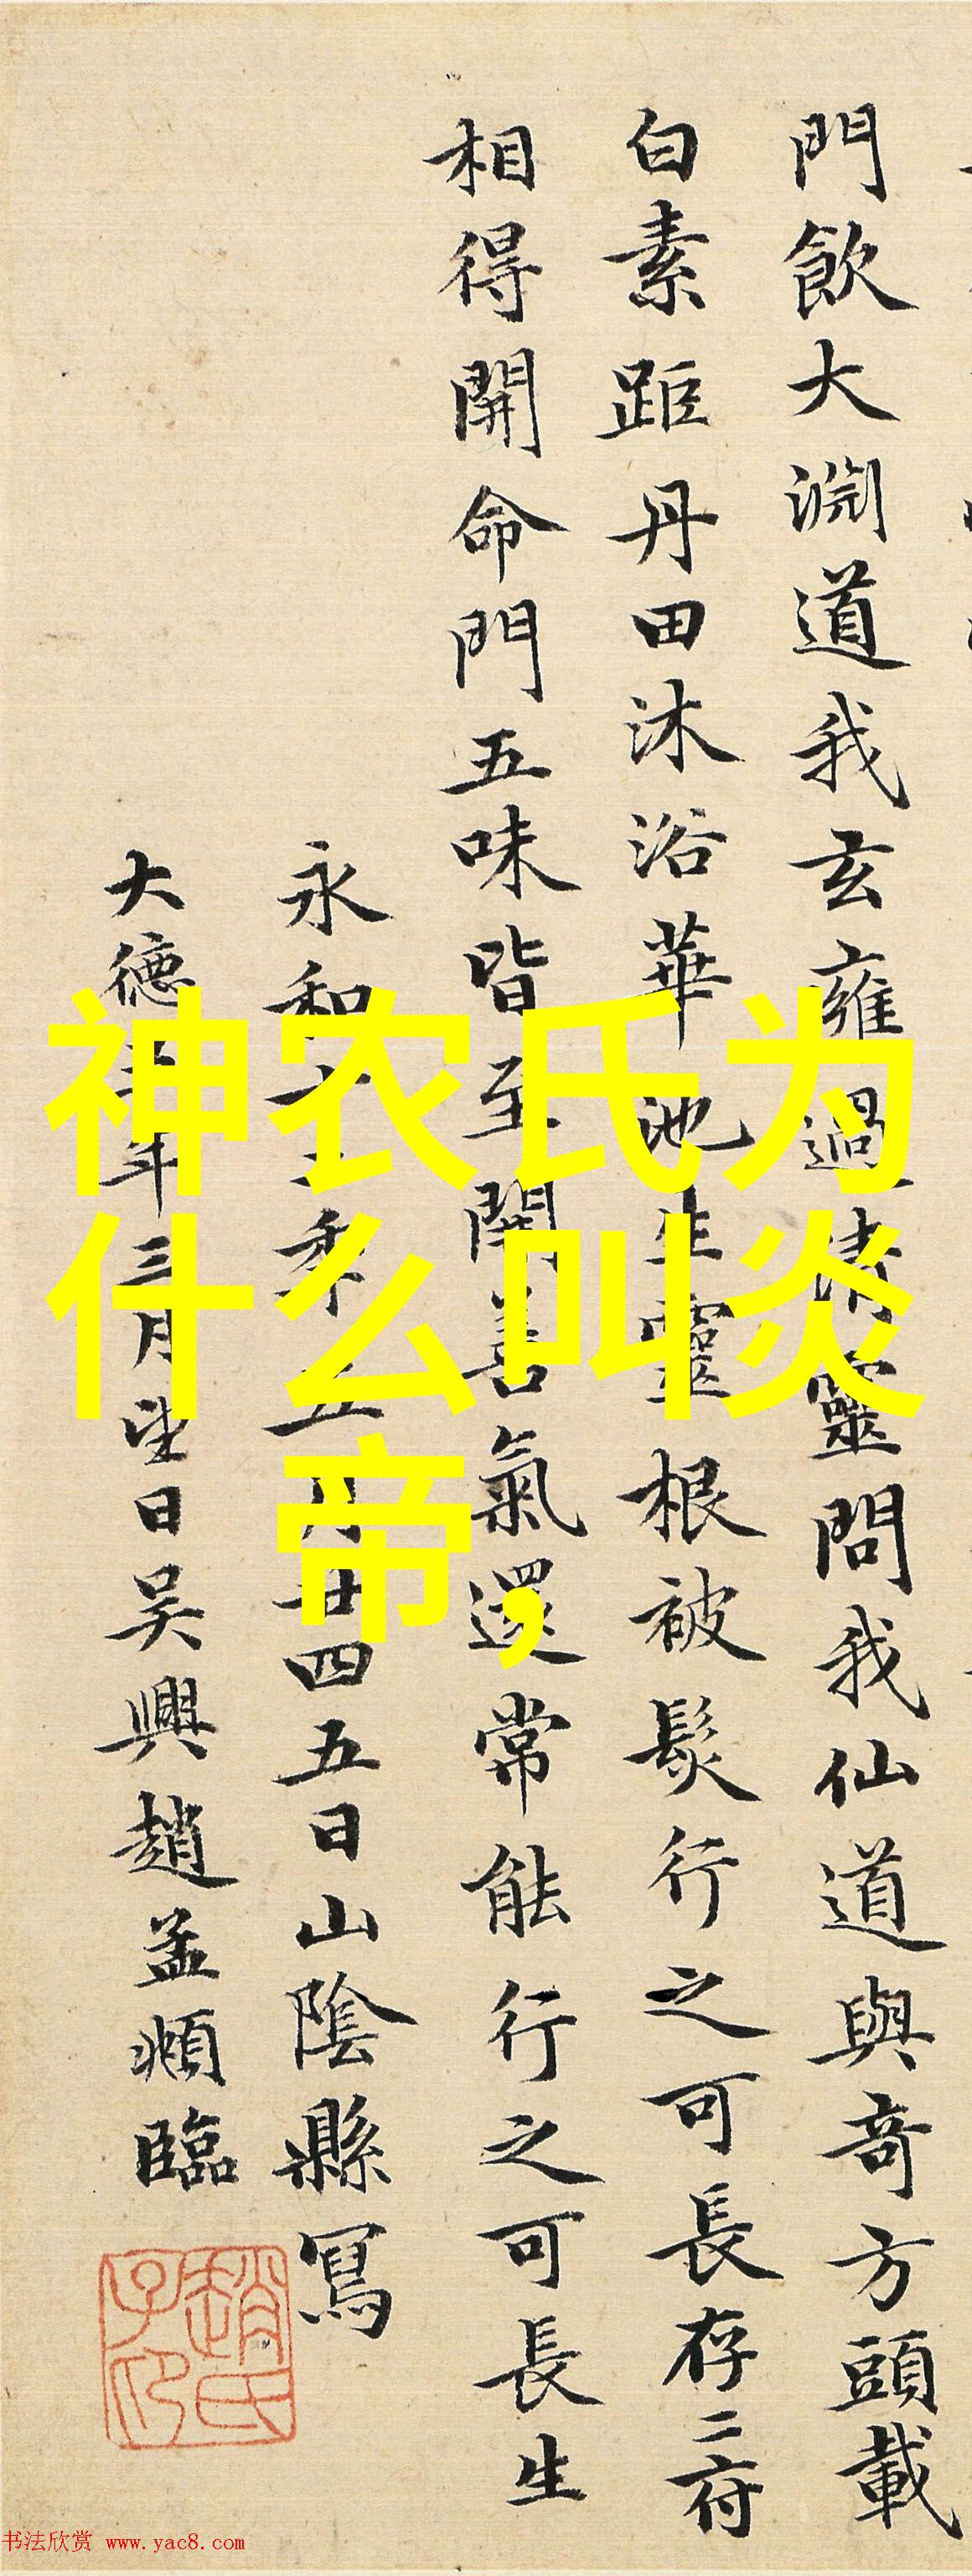 門飲大淵道我玄雍過清靈問我仙道與奇方頭載
白素距丹田沐浴華池生靈根被髮行之可長存二府
相得開命門五味皆至開善氣還常能行之可長生
永和十二年五月廿四五日山陰縣寫
大德年三月望日吳興趙孟頫臨
趙氏子昂
神农氏为
什么叫炎
帝,
书法欣赏 www.yac8.com